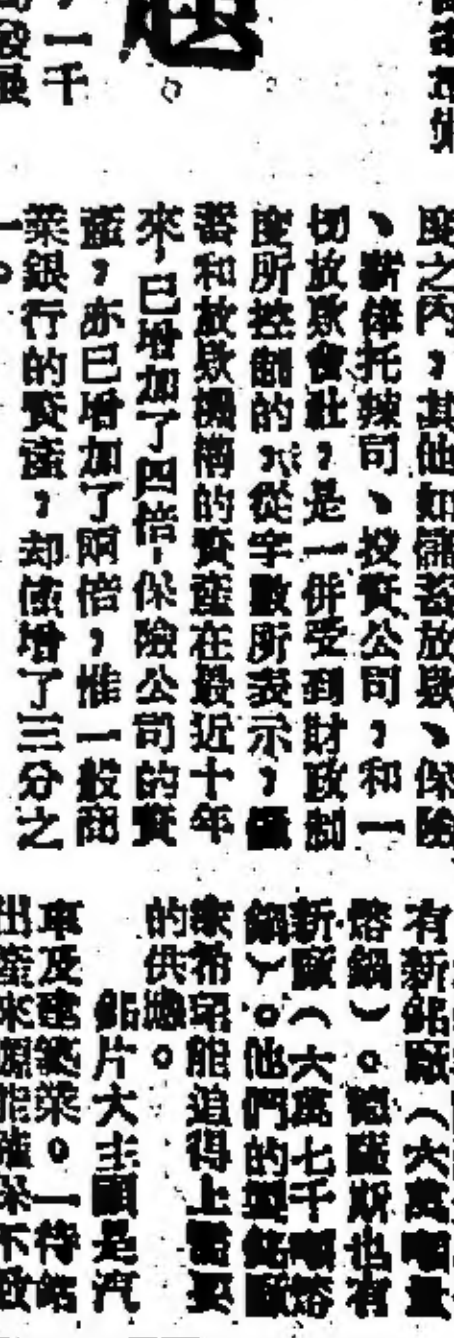 度之內，其他如儲蓄放欵、保險
、新偉托辣司、投資公司，和一
切放欵會社，是一併受到財政制
度所控制的，從字數所表示，儲
蓄和放欵機構的資產在最近十年
來，已增加了四倍，保險公司的資
產，亦已增加了兩倍，惟一般商
業銀行的資產，却僅增了三分之
一。
有新鋁廠（六萬噸量
熔鍋）。德薩斯也有
新廠（六萬七千噸熔
鍋）。他們的製鋁廠
家希望能追得上需要
的供應。
鋁片大主顧是汽
車及建築業。一待鋁
出產來源能確保不致
，一千